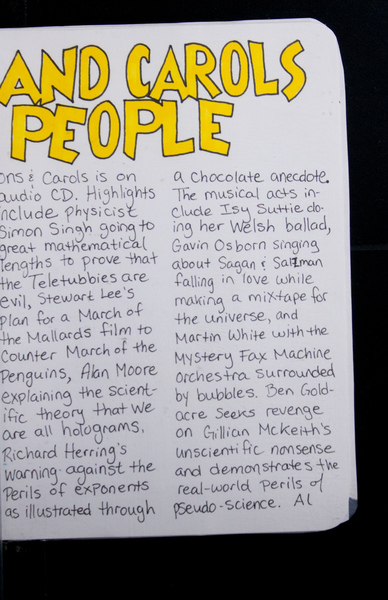 AND CAROLS
PEOPLE
ons & Carols is on
audio CD. Highlights
include physicist
Simon Singh going to
great mathematical
lengths to prove that
the Teletubbies are
evil, Stewart Lee's
plan for a March of
the Mallards film to
counter March of the
Penguins, Alan Moore
explaining the scient-
ific theory that we
are all holograms,
Richard Herring's
warning against the
perils of exponents
as illustrated through
a chocolate anecdote.
The musical acts in-
clude Isy Suttie do-
ing her Welsh ballad,
Gavin Osborn singing
about Sagan & Salzman
falling in love while
making a mixtape for
the universe, and
Martin White with the
Mystery Fax Machine
Orchestra surrounded
by bubbles. Ben Gold-
acre seeks revenge
on Gillian McKeith's
unscientific nonsense
and demonstrates the
real-world perils of
pseudo-science. Al